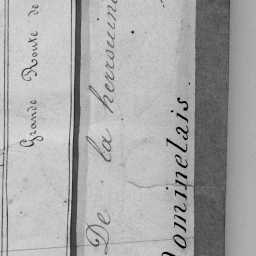 Grande Route de
De la herrouin
ominelais.